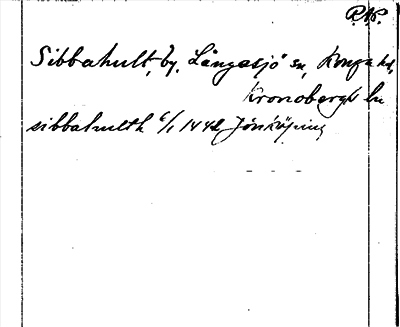 P.N.
Sibbahult, by, Långasjö sn, Konga hd,
Kronobergs ln
sibbahulth 6/1 1442 Jönköping